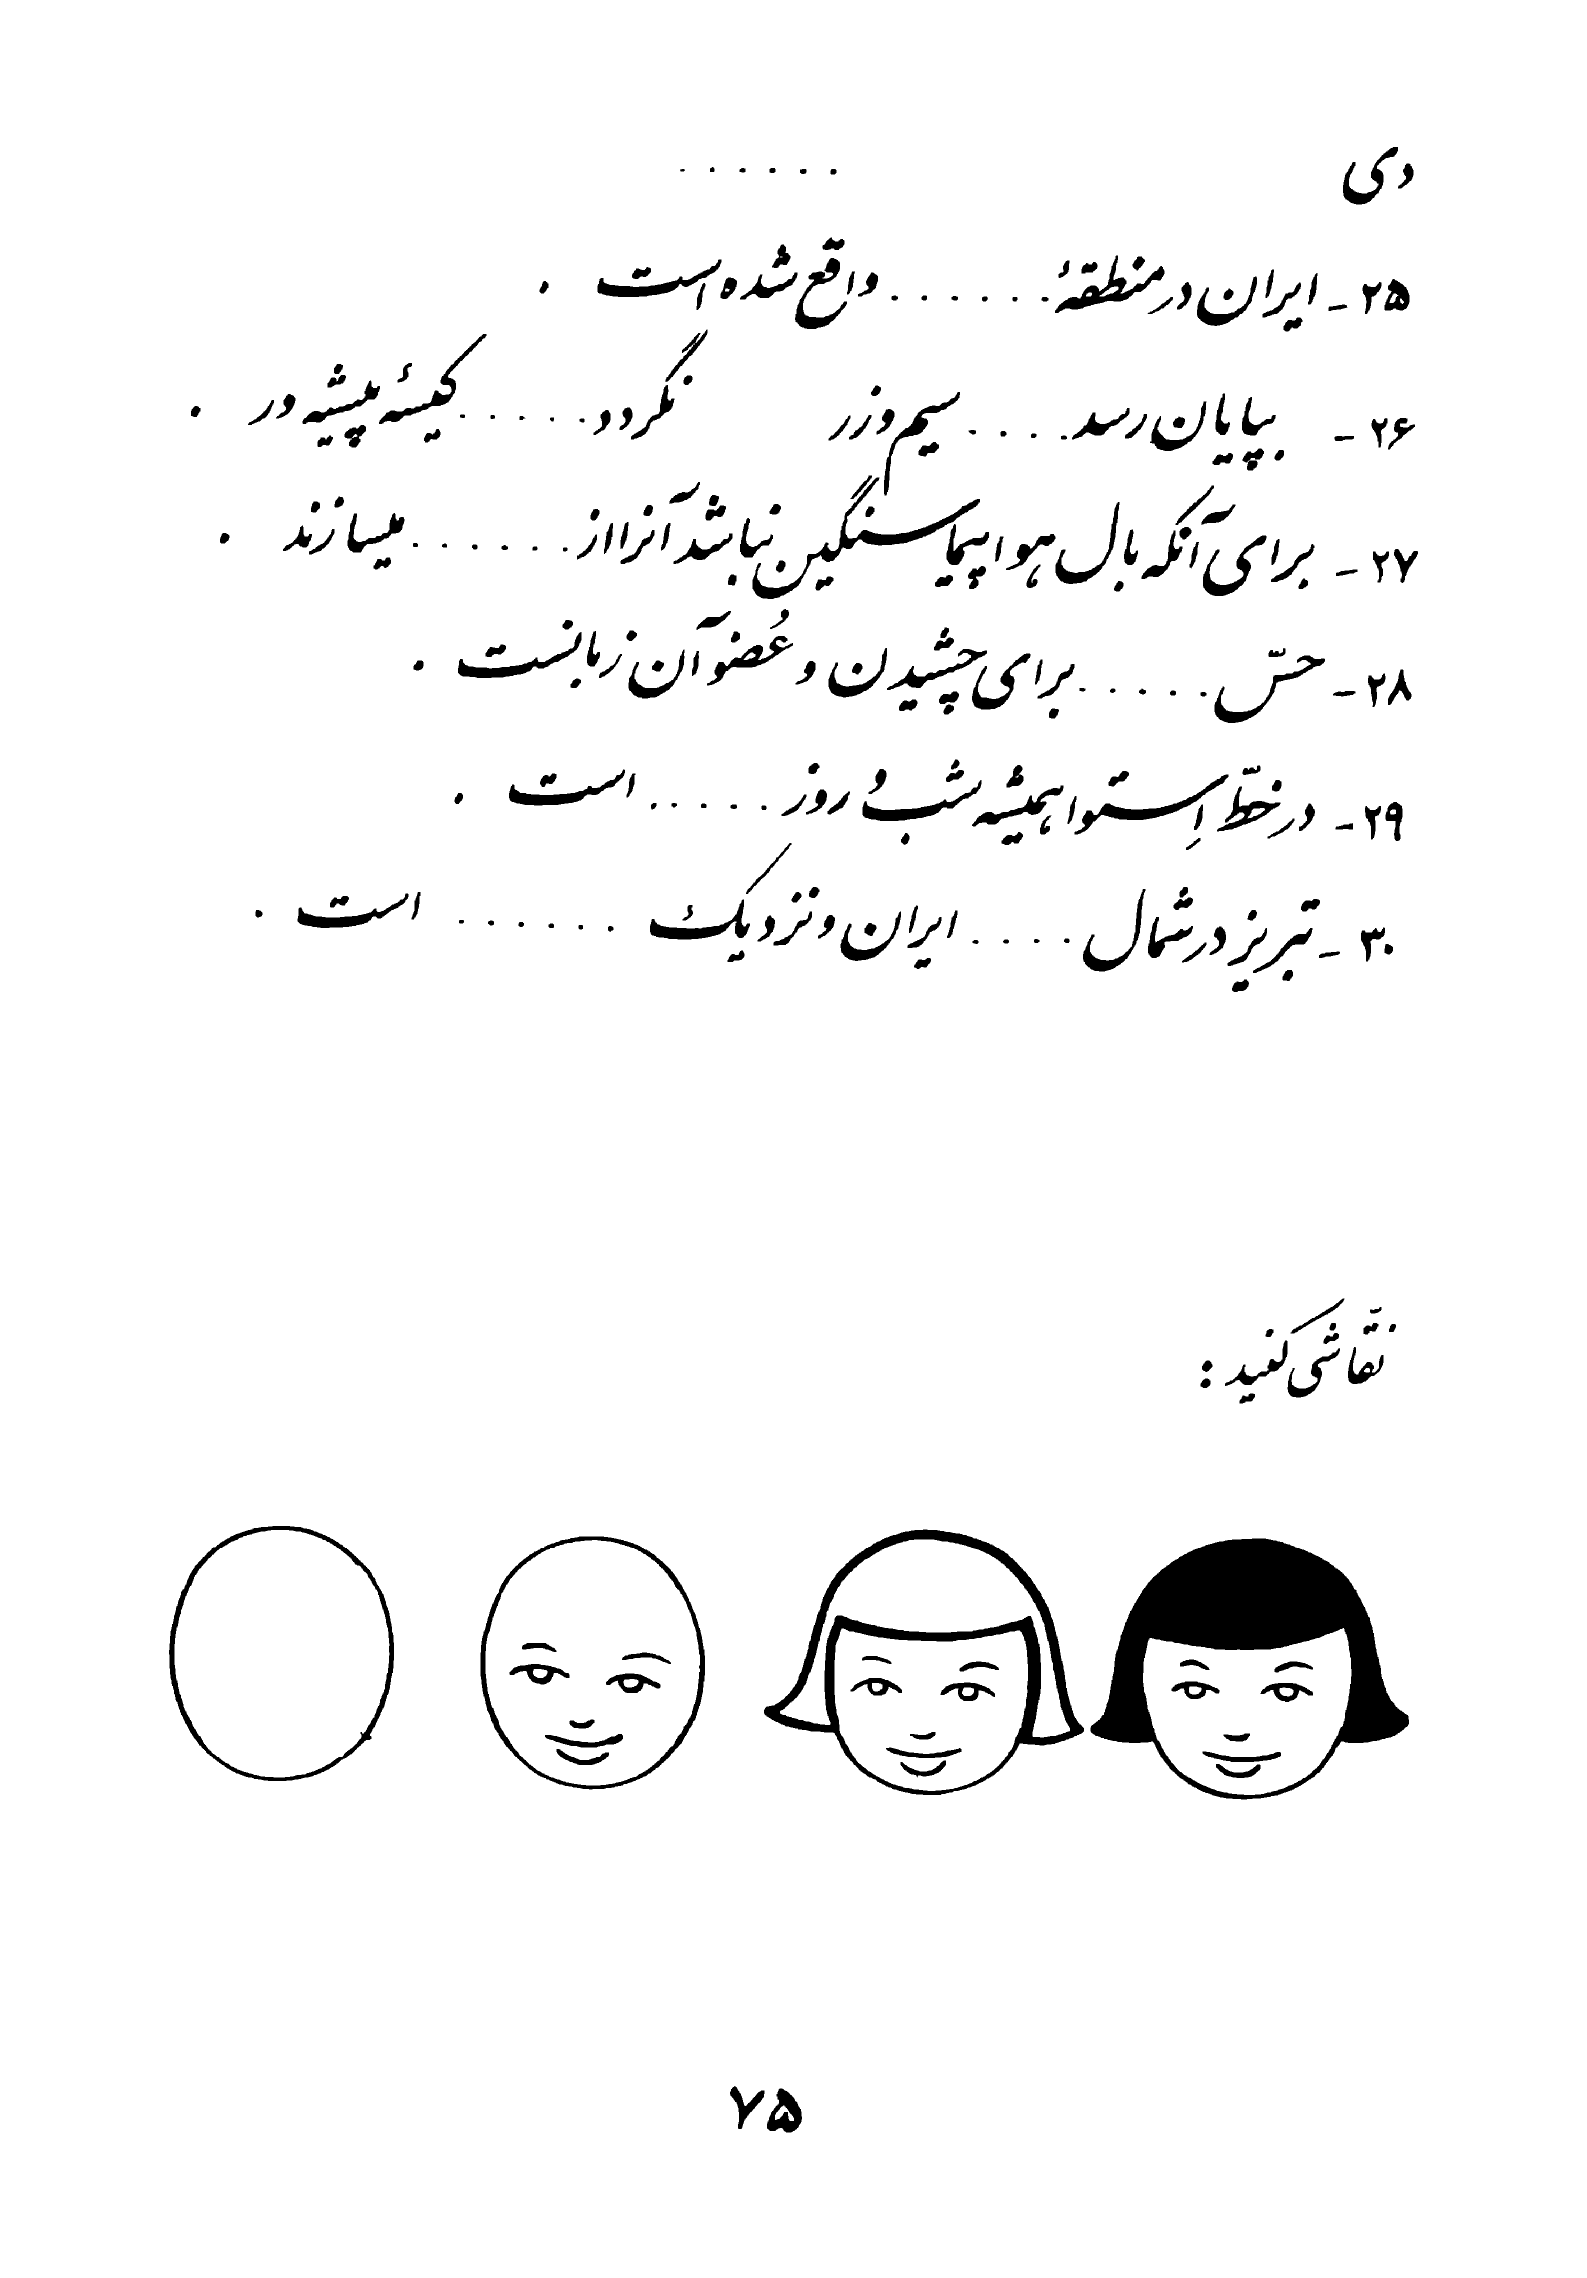 دی ......
۲۵ - ایران در منطقهٔ ...... واقع شده است .
۲۶ - بپایان رسد .... سیم و زر نگردد ..... کیسهٔ پیشه ور .
۲۷ - برای آنکه بال هواپیما سنگین نباشد آنرا از ...... میسازند .
۲۸ - حسّ ..... برای چشیدن و عُضو آن زبانست .
۲۹ - در خطّ اِستوا همیشه شب و روز ..... است .
۳۰ - تبریز در شمال .... ایران و نزدیک ...... است .
نقّاشی کنید :
۷۵